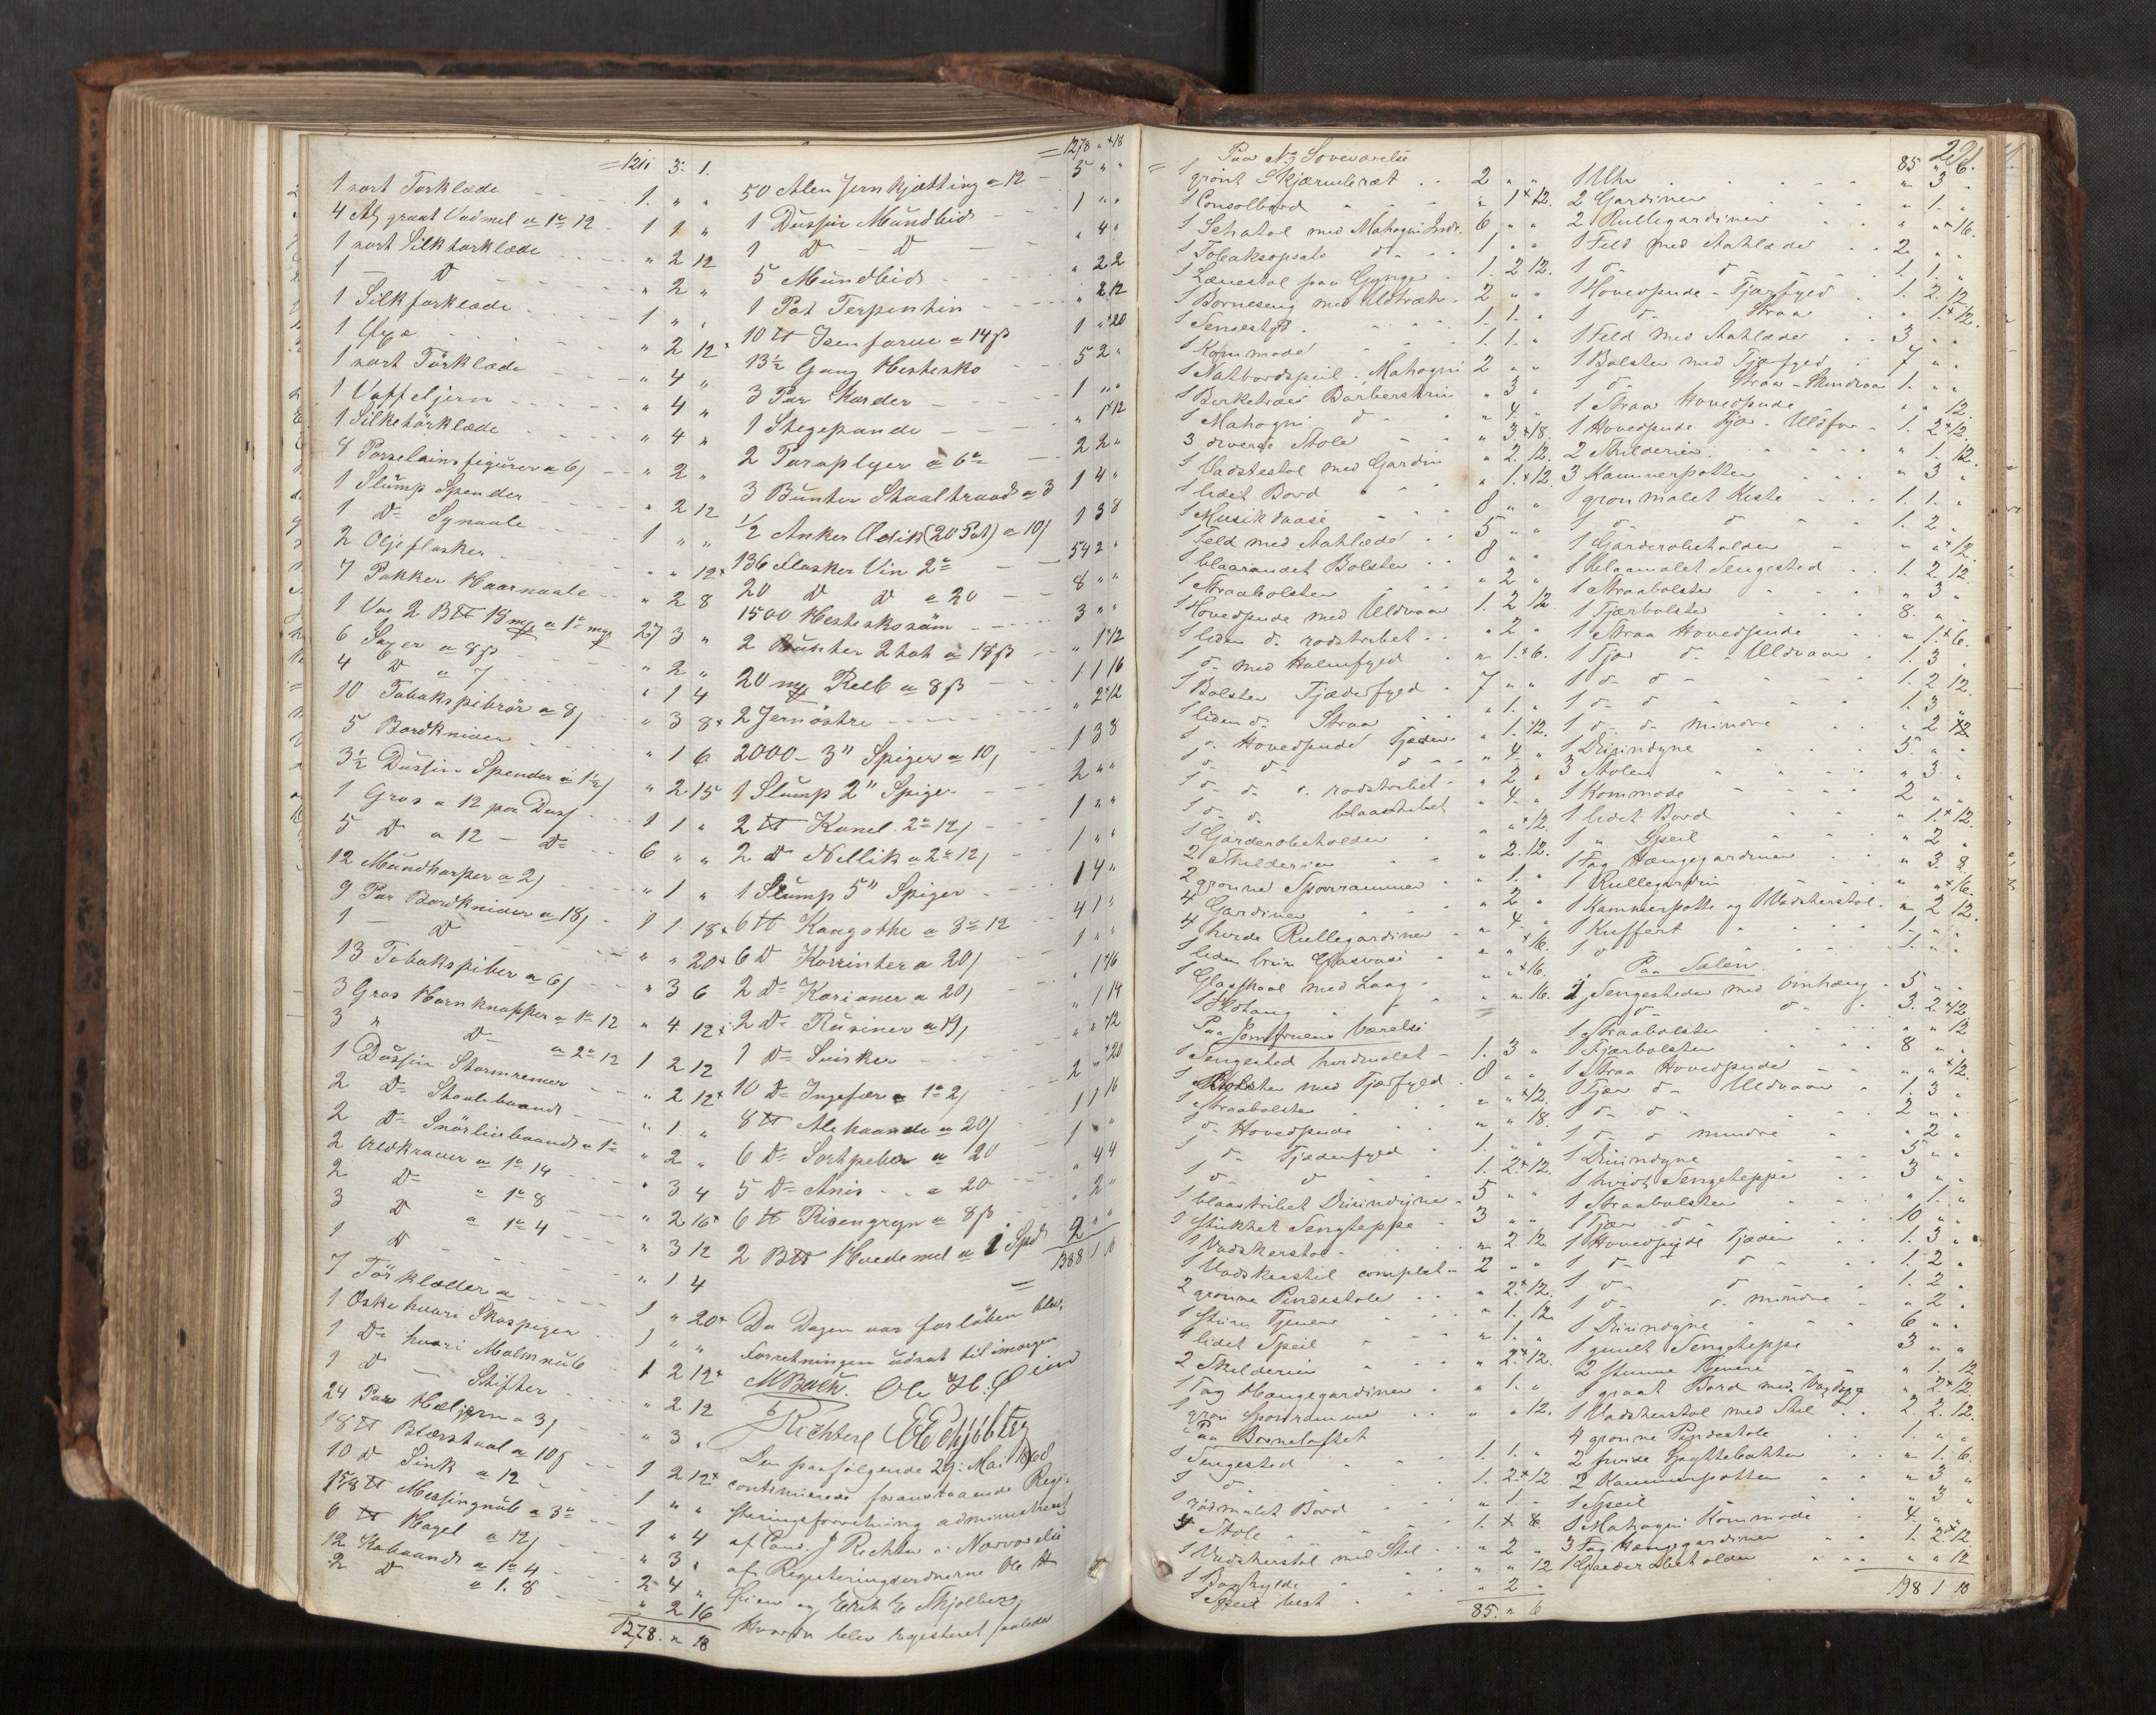 = 121 3 1.
1 sort Torklæde 1. " "
4 Al graat Vadmel a 1 12 1 1 "
1 sort Silktorklæde " 2 12
1 D " 2 "
1 Silkforklæde 1 " "
1 Øxe " 2 12
1 sort Törklæde " 4 "
1 Vaffeljern " 4 "
1 Silketörklæde " 4 "
8 Porselainsfigurer a 6 " 2 "
1 Slump Spender " 2 12
1 D Synaale 1 " "
2 Oljeflasker " " 12
7 Pakker Haarnaale " 2 8
1 Voe 2 B 27 3 "
6 Saxer a 8 " 2 "
4 D " 7 " 1 4
10 Tobakspiberör a 8 " 3 8
5 Bordkniver " 1 6
3½ Dussin Spender a 1½ " 2 15
1 Gros a 12 pr Duss 1 1 "
5 D a 12 - D 6 " "
12 Mundharper a 2 " 1 "
9 Par Bordkniver a 18 1 1 18
1 D " " 20
13 Tobakspiber a 6 " 3 6
3 Gros Hornknapper a 1 12 " 4 12
3 " D a 2 12 1 2 12
1 Dussin Stormremer " 2 12
2 D Staalebaand " 1 "
2 D Snörlivbaand a 1 " 2 "
2 Uldkraver a 1 14 " 3 4
2 D " 1 8 " 2 16
3 D a 1 4 " 3 12
1 D " 1 4
7 Törklæder a 1 " 20
1 Æske hvori Skospiger 1 " "
1 D hvori Malmnub 1 2 12
1 D - Stifter " 2 12
24 Par Hæljern a 3 " 3 "
18 Blærstaal a 10 1 2 12
10 D Sink a 12 1 " "
1 5/8 Messingnub a 3 1 " 4
6 Hagel a 12 " 3 "
12 Kobaand a 1 4 2 4 "
2 D a 1. 8 " 2 16
1278. " 18
= 1278 " 18
50 Alen Jernkjætting a 12 5 " "
1 Dussin Mundbid 1 " "
1 D D " 4 "
5 Mundbid " 2 2
1 Pot Terpentin " 2 12
10 Isenfarve a 14 1 " 20
13½ Gang Hestesko 5 2 "
3 Par Karder 1 " "
1 Stegepande " 1 12
2 Paraplyer a 6 2 2 "
3 Bunter Staaltraad a 3 1 4 "
½ Anker Edik (20 Pot) a 10 1 3 8
136 Flasker Vin 2 54 2 "
20 D D a 20 8 " "
1500 Hesteskosöm 3 " "
2 Bunter 2 tot a 18 " 1 12
20 Reeb a 8 1 1 16
2 Jernöstre " 2 12
2000 - 3" Spiger a 10 1 3 8
1 Slump 2" Spiger 2 " "
2 Kanel 2 12 1 " "
2 D Nellik a 2 12 1 " "
1 Slump 5" Spiger 1 4 "
6 Kangothe a 3 12 4 1 "
6 D Korrinter a 20 1 " "
2 D Korianer a 20 " 1 16
2 D Rusiner a 19 " 1 14
1 D Svisker " " 12
10 D Ingefær a 1 2 2 " 20
8 Alehaande a 20 1 1 16
6 D Sortpeber a 20 1 " "
5 D Anis a 20 " 4 4
6 Risengryn a 8 " 2 "
2 B Hvedemel a 1 Spd 2 " "
1388 1 10
=
Da Dagen var forløben blev
Forretningen udsat til imorgen
MBach. Ole H: Øien
J Richter EESkjölberg
Den paafølgende 29: Mai 1868
continueredes foranstaaende Regi-
streringsforretning administreret
af Cand. J Richter i Nærværelse
af Registreringsvidnerne Ole H
Øien og Erik E Skjølberg,
Hvorda blev registreret saaledes
291
Paa No 3 Soveværelse
1 grønt Skjærmbræt 2 " "
1 Consolbord " 1 12.
1 Schatol med Mahogni Indr. 6 " "
1 Tobaksopsats d 1 " "
1 Lænestol paa Gynger 1. 2 12.
1 Børneseng med Udtræk 2 " "
1 Sengested 1. 1. "
1 Kommode 1. 1. "
1 Natbordspeil - Mahogni 2 " "
1 Berketræes Barberskrin " 3 "
1 Mahogni d " 4. "
3 diverse Stole " 3. 18.
1 Vadskestol med Gardin " 2. 12.
1 lidet Bord " 1. 12.
1 Musikdaase 8 " "
1 Feld med Aaklæde 5 " "
1 blaarandet Bolster 8 " "
1 Straabolster " 2 "
1 Hovedpude med Uldvaar 1. 2 12
1 liden d. rødstribet " 2 "
1 d med Halmfyld " 1. 6.
1 Bolster Fjæderfyld 7 " "
1 liden d. Straa " 1. "
1 d. Hovedpude Fjæder " 1. 12.
1 d. d. d " 4. "
1 d. d. rødstribet " 2 "
1 d. d. blaastribet " 4. "
1 Garderobeholder " " 12.
2 Skilderier " 2. 12.
2 grønne Sporrammer " 1. "
4 Gardiner " 2 "
4 hvide Rullegardiner " 4. "
1 liden brun Glasvase " " 16.
1 Glasskaal med Laag " " 16.
1 Ildtang " " 16.
Paa Jomfruens Værelse
1 Sengested hvidmalet 1. 3 "
1 Bolster med Fjærfyld 8 " "
1 Straabolster " " 12.
1 d. Hovedpude " " 18.
1 d Fjæderfyld 1. " "
1 d d 1. 2. 12.
1 blaastribet Duundyne 5 " "
1 stukket Sengteppe 3 " "
1 Vadskerstol " 2. 12.
1 Vadskerstel complet 2 " "
2 grønne Pindestole " 2. 12.
1 stum Tjener " 1. 12
1 lidet Speil " 1. "
2 Skilderier " 2. 12.
1 Fag Hængegardiner " 1. "
1 grøn Sporramme " " 12.
Paa Børneloftet
1 Sengested 1. 1. "
1 d 1. 2. 12
1 rödmalet Bord " 1. "
4 Stole 1. " 8.
1 Vadskerstol med Stel " 2 "
1 Boghylde " " 12
1 Speil best " 2 "
85. " 6
85 " 6.
1 Uhr " 3 "
2 Gardiner " 1. "
2 Rullegardiner " " 16.
1 Feld med Aaklæde 2 " "
1 d d 1. 1. "
1 Hovedpude - Fjærfyld 1. 2. 12
1 d Straa " 1. 12.
1 Feld med Aaklæde 3 " "
1 Bolster med Fjærfyld 7 " "
1 d Straa 1. " "
1 Straa Hovedpude " " 12.
1 Hovedpude Fjær. 1. 2 12.
2 Skilderier " 1. 12.
3 Kammerpotter " 3 "
1 grønmalet Kiste 1. 1. "
1 d d 1. 2 "
1 Garderobeholder " " 12.
1 blaamalet Sengested 1. 2. 12.
1 Straabolster " 3 "
1 Fjærbolster 8. " "
1 Straa Hovedpude " 1. 6.
1 Fjær d. - Uldvaar 1. 3 "
1 d d 1. 2 12.
1 d d 1. 3 "
1 d d mindre " 2 12
1 Duundyne 5. " "
3 Stoler " 3 "
1 Kommode 2 " "
1 lidet Bord " 1. 12.
1 " Speil " 2 "
1 Fag Hængegardiner " 3. 8.
1 Rullegardin " " 16.
1 Kammerpotte og Vadskerstol " 2 12.
1 Kuffert 1. " "
1 d 1. " "
Paa Salen
1 Sengesteder med Omhæng 5 " "
1 d d 3. 2. 12
1 Straabolster " " 12
1 Fjærbolster 8 " "
1 Straa Hovedpude " " 12.
1 Fjær d Uldvaar 1. 3 "
1 d d 2 " "
1 d d mindre " 2 "
1 Duundyne 5 " "
1 hvidt Sengeteppe 3 " "
1 Straabolster " 1. "
1 Fjær d 10 " "
1 Hovedpude Fjæder 1. 3 "
1 d d 1. 2 "
1 d d 1. 2 "
1 d d. mindre " 2 "
1 Duundyne 6 " "
1 guult Sengeteppe 3 " "
2 stumme Tjenere " 1. 12
1 graat Bord med Voxdug " 2. 12.
1 Vadskerstol med Stel 2 2. 12.
4 grønne Pindestole 1. " "
2 hvide Spyttebakker " 1. 6.
2 Kammerpotter " 3 "
1 Speil " 3 "
1 Mahogni Kommode 4. " "
3 Fag Hængegardiner 1. 2. 12
1 Garderobeholder " " 12
198 1 18